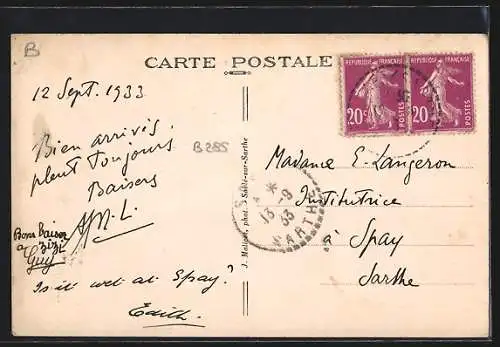 B
CARTE POSTALE
REPUBLIQUE FRANÇAISE
20c
POSTES
REPUBLIQUE FRANÇAISE
20c
POSTES
12 Sept. 1933
Bien arrivés,
pleut toujours
Baisers
B285
Bons baisers
a zizi
Guy
Is it wet at Spay?
Edith.
J. Malicot, phot., Sablé-sur-Sarthe
13-9
33
SARTHE
Madame E. Langeron
Institutrice
à Spay
Sarthe